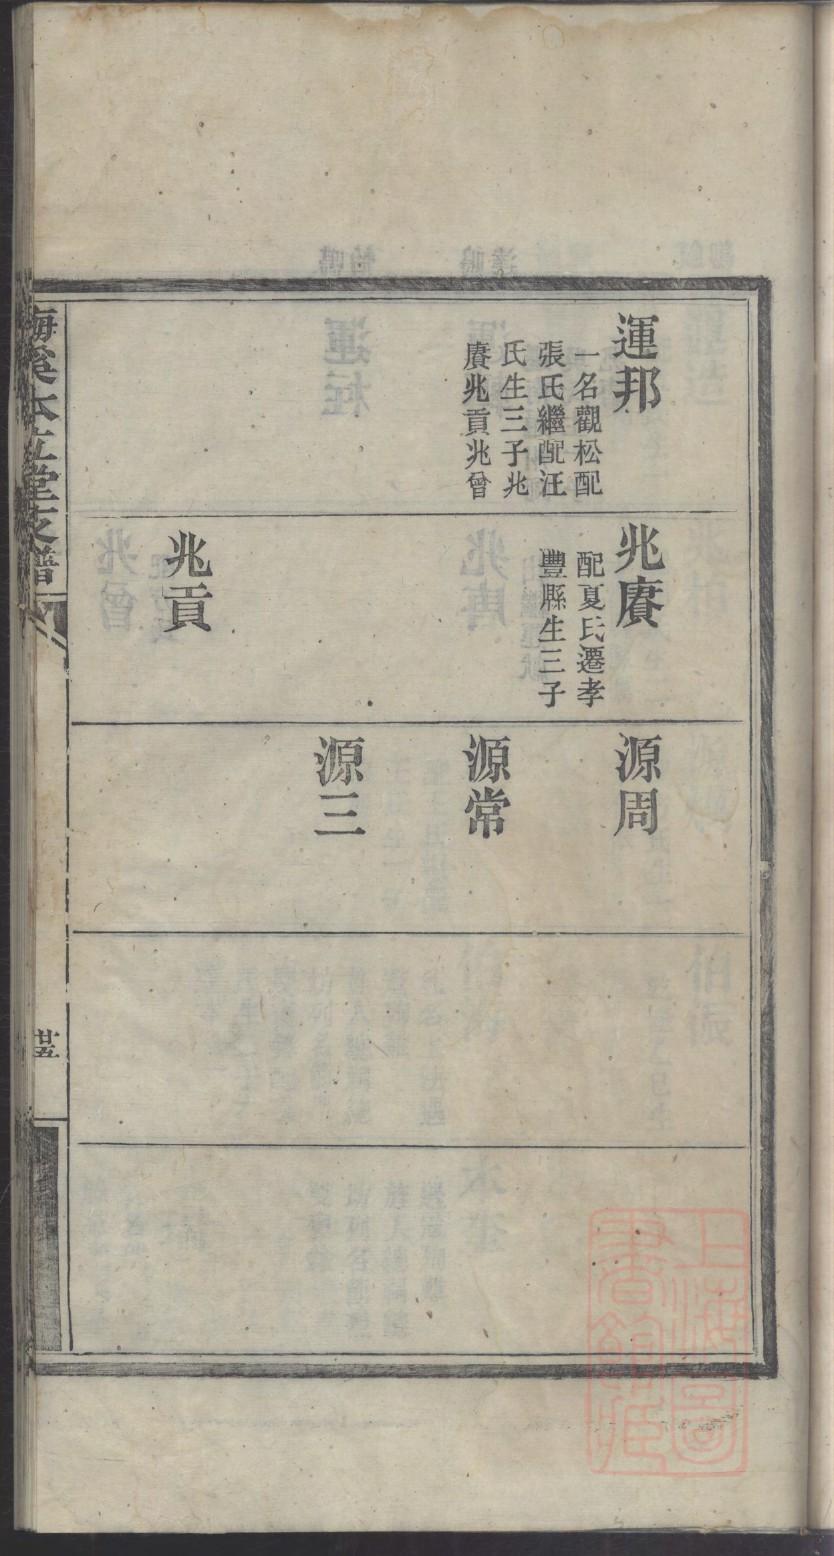 運邦
一名觀松配
張氏繼配汪
氏生三子兆
賡兆貢兆曾
兆賡
配夏氏遷孝
豐縣生三子
兆貢
源周
源常
源三
梅溪本立堂支譜
廿五
上海圖
書館藏